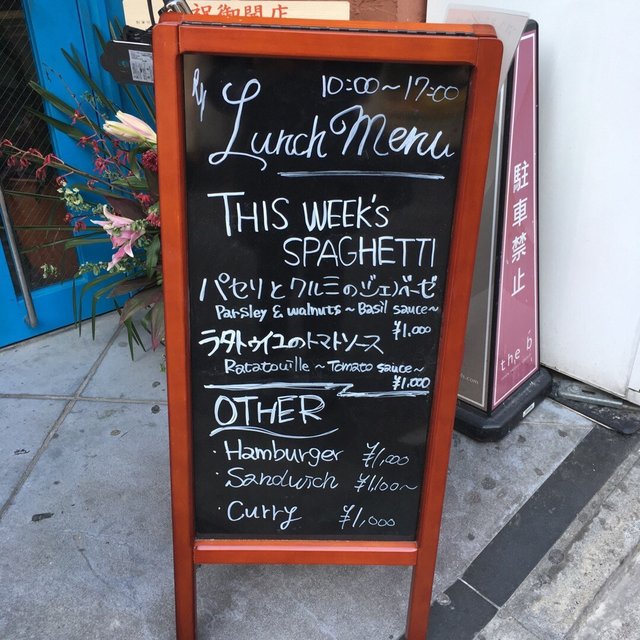 祝御開店
10:00~17:00
Lunch Menu
THIS WEEK'S
SPAGHETTI
パセリとクルミのジェノベーゼ
Parsley & walnuts ~ Basil sauce~
¥1,000
ラタトゥイユのトマトソース
Ratatouille ~ Tomato sauce~
¥1,000
OTHER
・Hamburger ¥1,000
・Sandwich ¥1,100~
・Curry ¥1,000
駐車禁止
the b